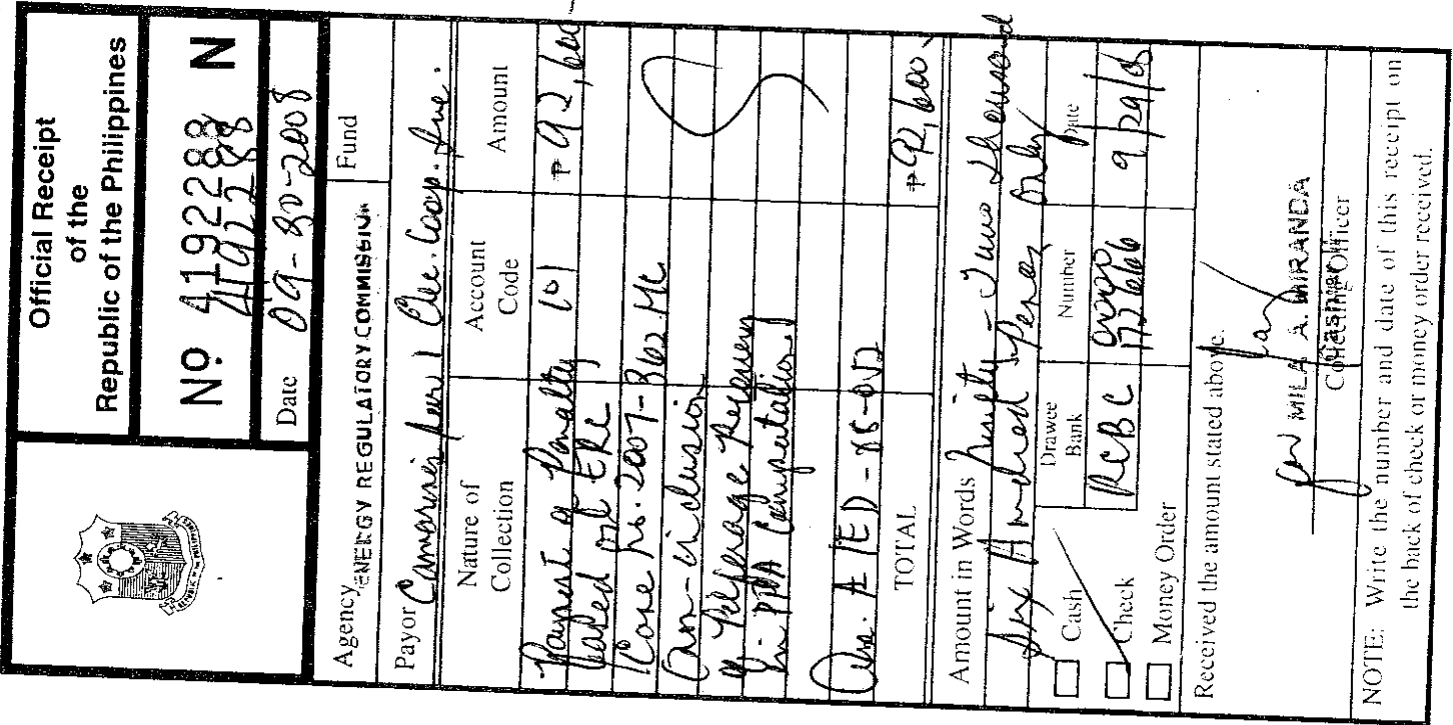 Official Receipt
of the
Republic of the Philippines
No. 4192288 N
4192288
Date 09-30-2008
Agency ENERGY REGULATORY COMMISSION Fund
Payor Camarines Sur I Elec. Coop. Inc.
Nature of Collection Account Code Amount
Payment of Penalty 101 ₱92,600
based on ERC
Case no. 2007-302 MC
(non-inclusion
of Pilferage Recovery
in PPA Computation)
TOTAL ₱92,600.
Amount in Words Ninety-Two Thousand
Six Hundred Pesos only
Cash Drawee Bank Number Date
Check RCBC 9/29/08
Money Order
Received the amount stated above.
MILA A. MIRANDA
Cashier
Collecting Officer
NOTE: Write the number and date of this receipt on
the back of check or money order received.